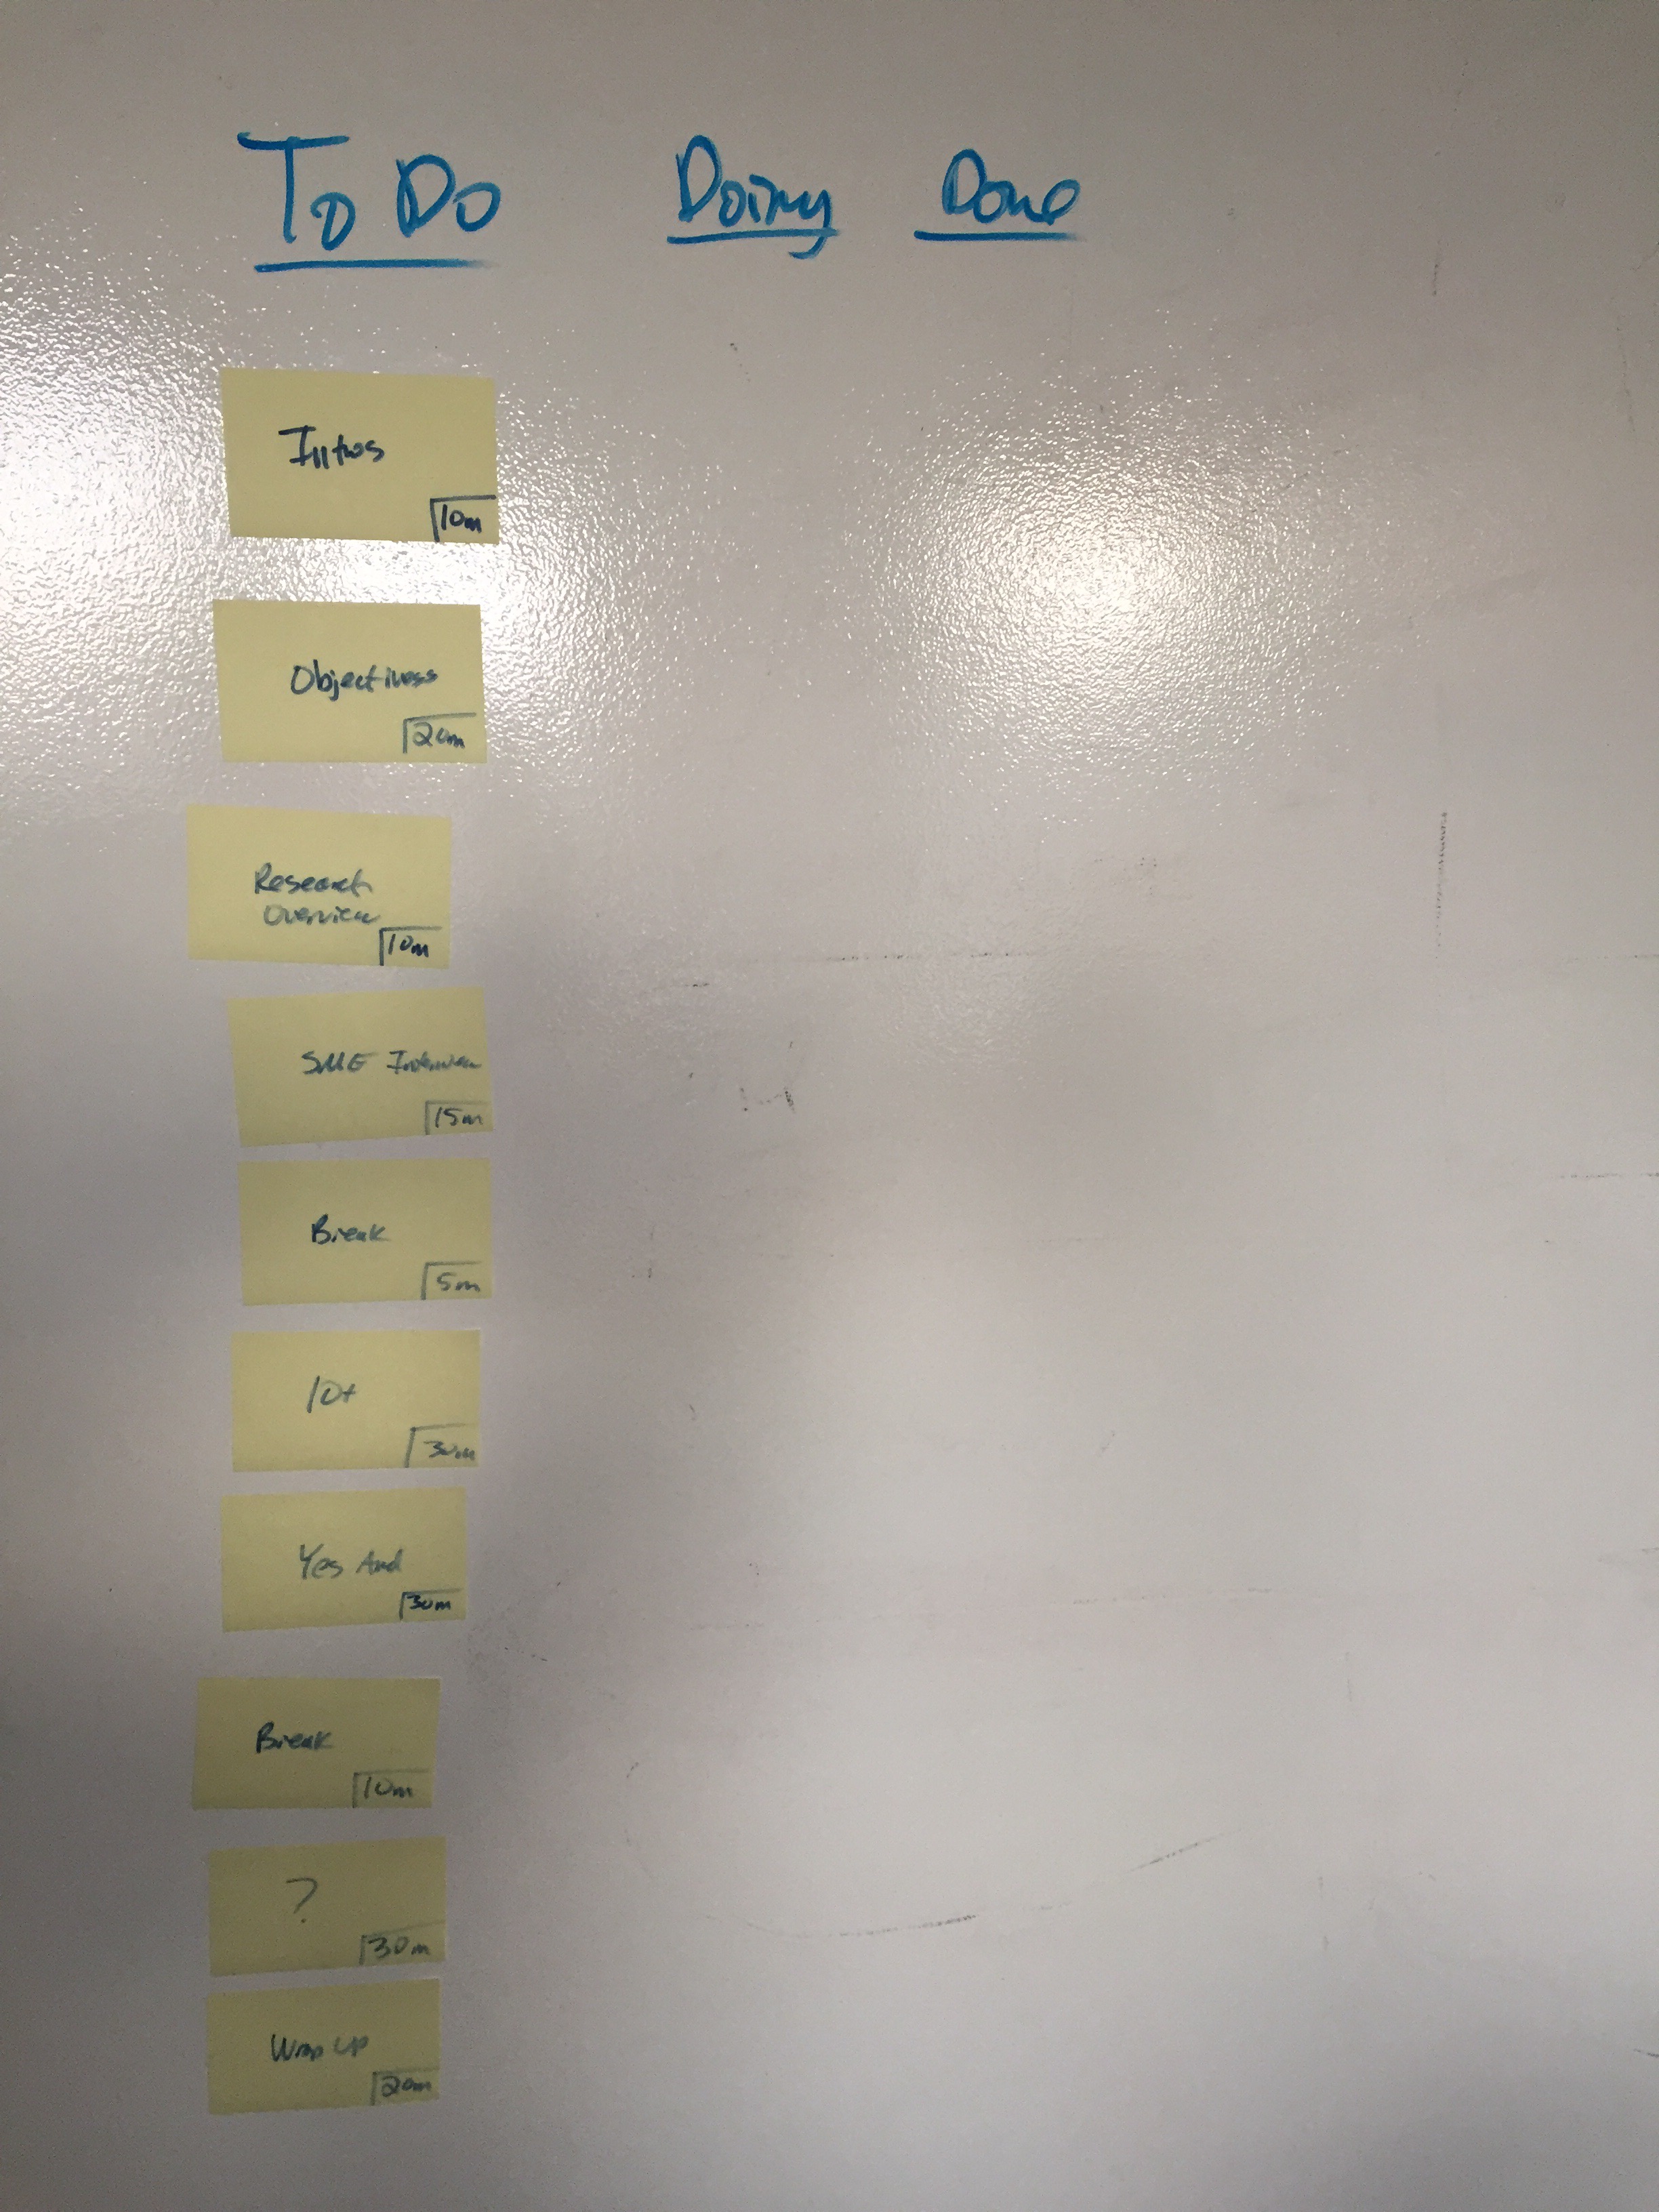 To Do Doing Done
Intros
10m
Objectives
20m
Research
Overview
10m
SME Interview
15m
Break
5m
10+
30m
Yes And
30m
Break
10m
?
30m
Wrap up
20m